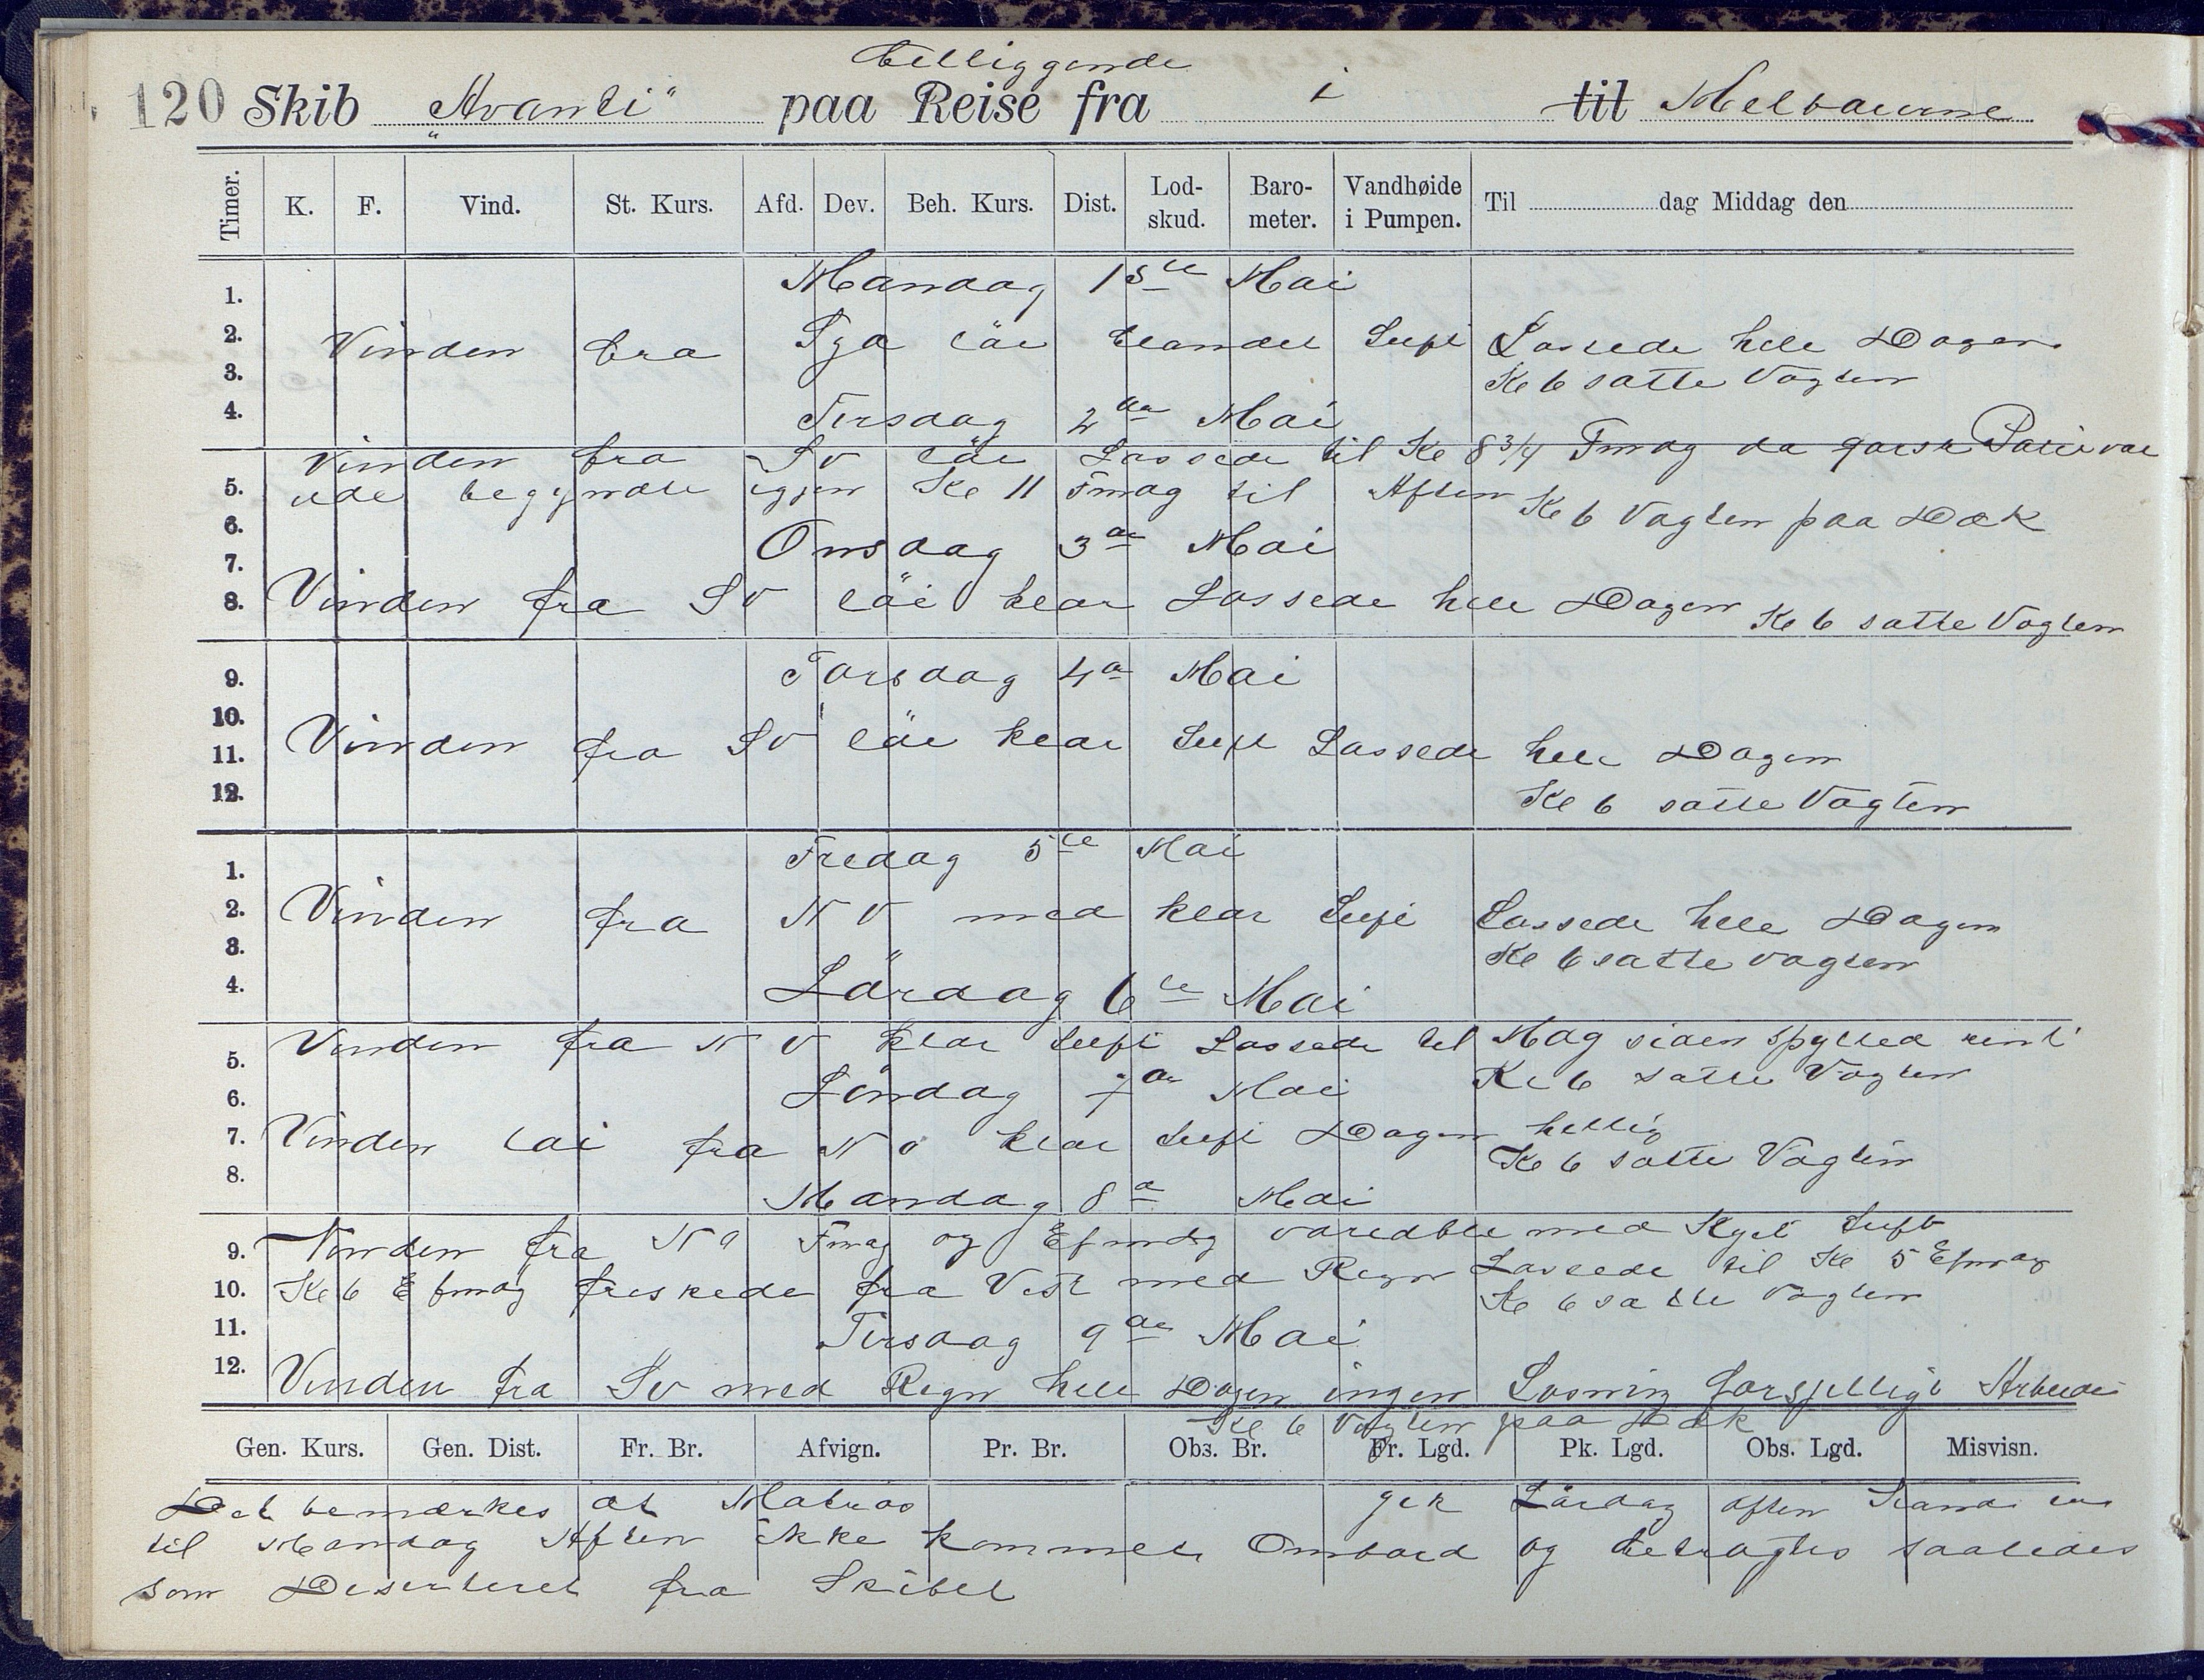 belliggende
120 Skib „Avanti" paa Reise fra i til Melbourne
Timer. K. F. Vind. St. Kurs. Afd. Dev. Beh. Kurs. Dist. Lod-skud. Baro-meter. Vandhøide i Pumpen. Til dag Middag den
Mandag 1ste Mai
1.
2. Vinden fra Syd löi blandet Luft Lossede hele Dagen
3. Kl 6 satte Vagten
4. Tirsdag 2den Mai
Vinden fra SV löi Lossede til Kl 8 3/4 Fmdg da
5. ude begyndte igjen Kl 11 Fmdg til Aften Kl 6 Vagten paa Dæk
6. Onsdag 3de Mai
7.
8. Vinden fra SV löi klar Lossede hele Dagen Kl 6 satte Vagten
9. Torsdag 4de Mai
10.
11. Vinden fra SV löi klar Luft Lossede hele Dagen
12. Kl 6 satte Vagten
Fredag 5te Mai
1.
2. Vinden fra NV med klar Luft Lossede hele Dagen
3. Kl 6 satte vagten
4. Lördag 6te Mai
5. Vinden fra NV klar Luft Lossede til Mdg siden spylled rent
Söndag 7de Mai Kl 6 satte Vagten
6.
7. Vinden löi fra NV klar Luft Dagen hellig
8. Kl 6 satte Vagten
Mandag 8de Mai
9. Vinden fra Fmdg og Efmdg med Luft
10. Kl 6 Efmdg friskede fra Vest med Regn Lossede til Kl 5 Efmdg
Kl 6 satte Vagten
11. Tirsdag 9de Mai
12. Vinden fra SV med Regn hele Dagen ingen Losning forsjelligt Arbeide
Kl 6 Vagten paa Dæk
Gen. Kurs. Gen. Dist. Fr. Br. Afvign. Pr. Br. Obs. Br. Fr. Lgd. Pk. Lgd. Obs. Lgd. Misvisn.
Det bemærkes at Matros gik Lördag Aften iland
til Mandag Aften ikke kommet Ombord og betragtes saaledes
som Deserteret fra Skibet